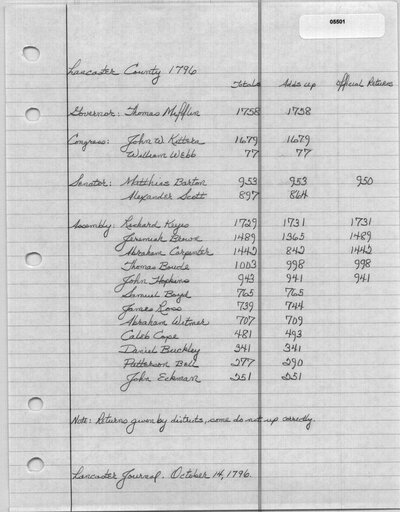 05501
Lancaster County 1796
Totals Adds up Official Returns
Governor: Thomas Mifflin 1758 1758
Congress: John W. Kittera 1679 1679
William Webb 77 77
Senator: Matthias Barton 953 953 950
Alexander Scott 897 864
Assembly: Richard Keys 1729 1731 1731
Jeremiah Brown 1489 1365 1489
Abraham Carpenter 1442 842 1442
Thomas Boude 1003 998 998
John Hopkins 943 941 941
Samuel Boyd 765 765
James Ross 739 744
Abraham Witmer 707 709
Caleb Cope 481 493
Daniel Buckley 341 341
Patterson Bell 277 290
John Eckman 251 251
Note: Returns given by districts, some do not up correctly.
Lancaster Journal. October 14, 1796.